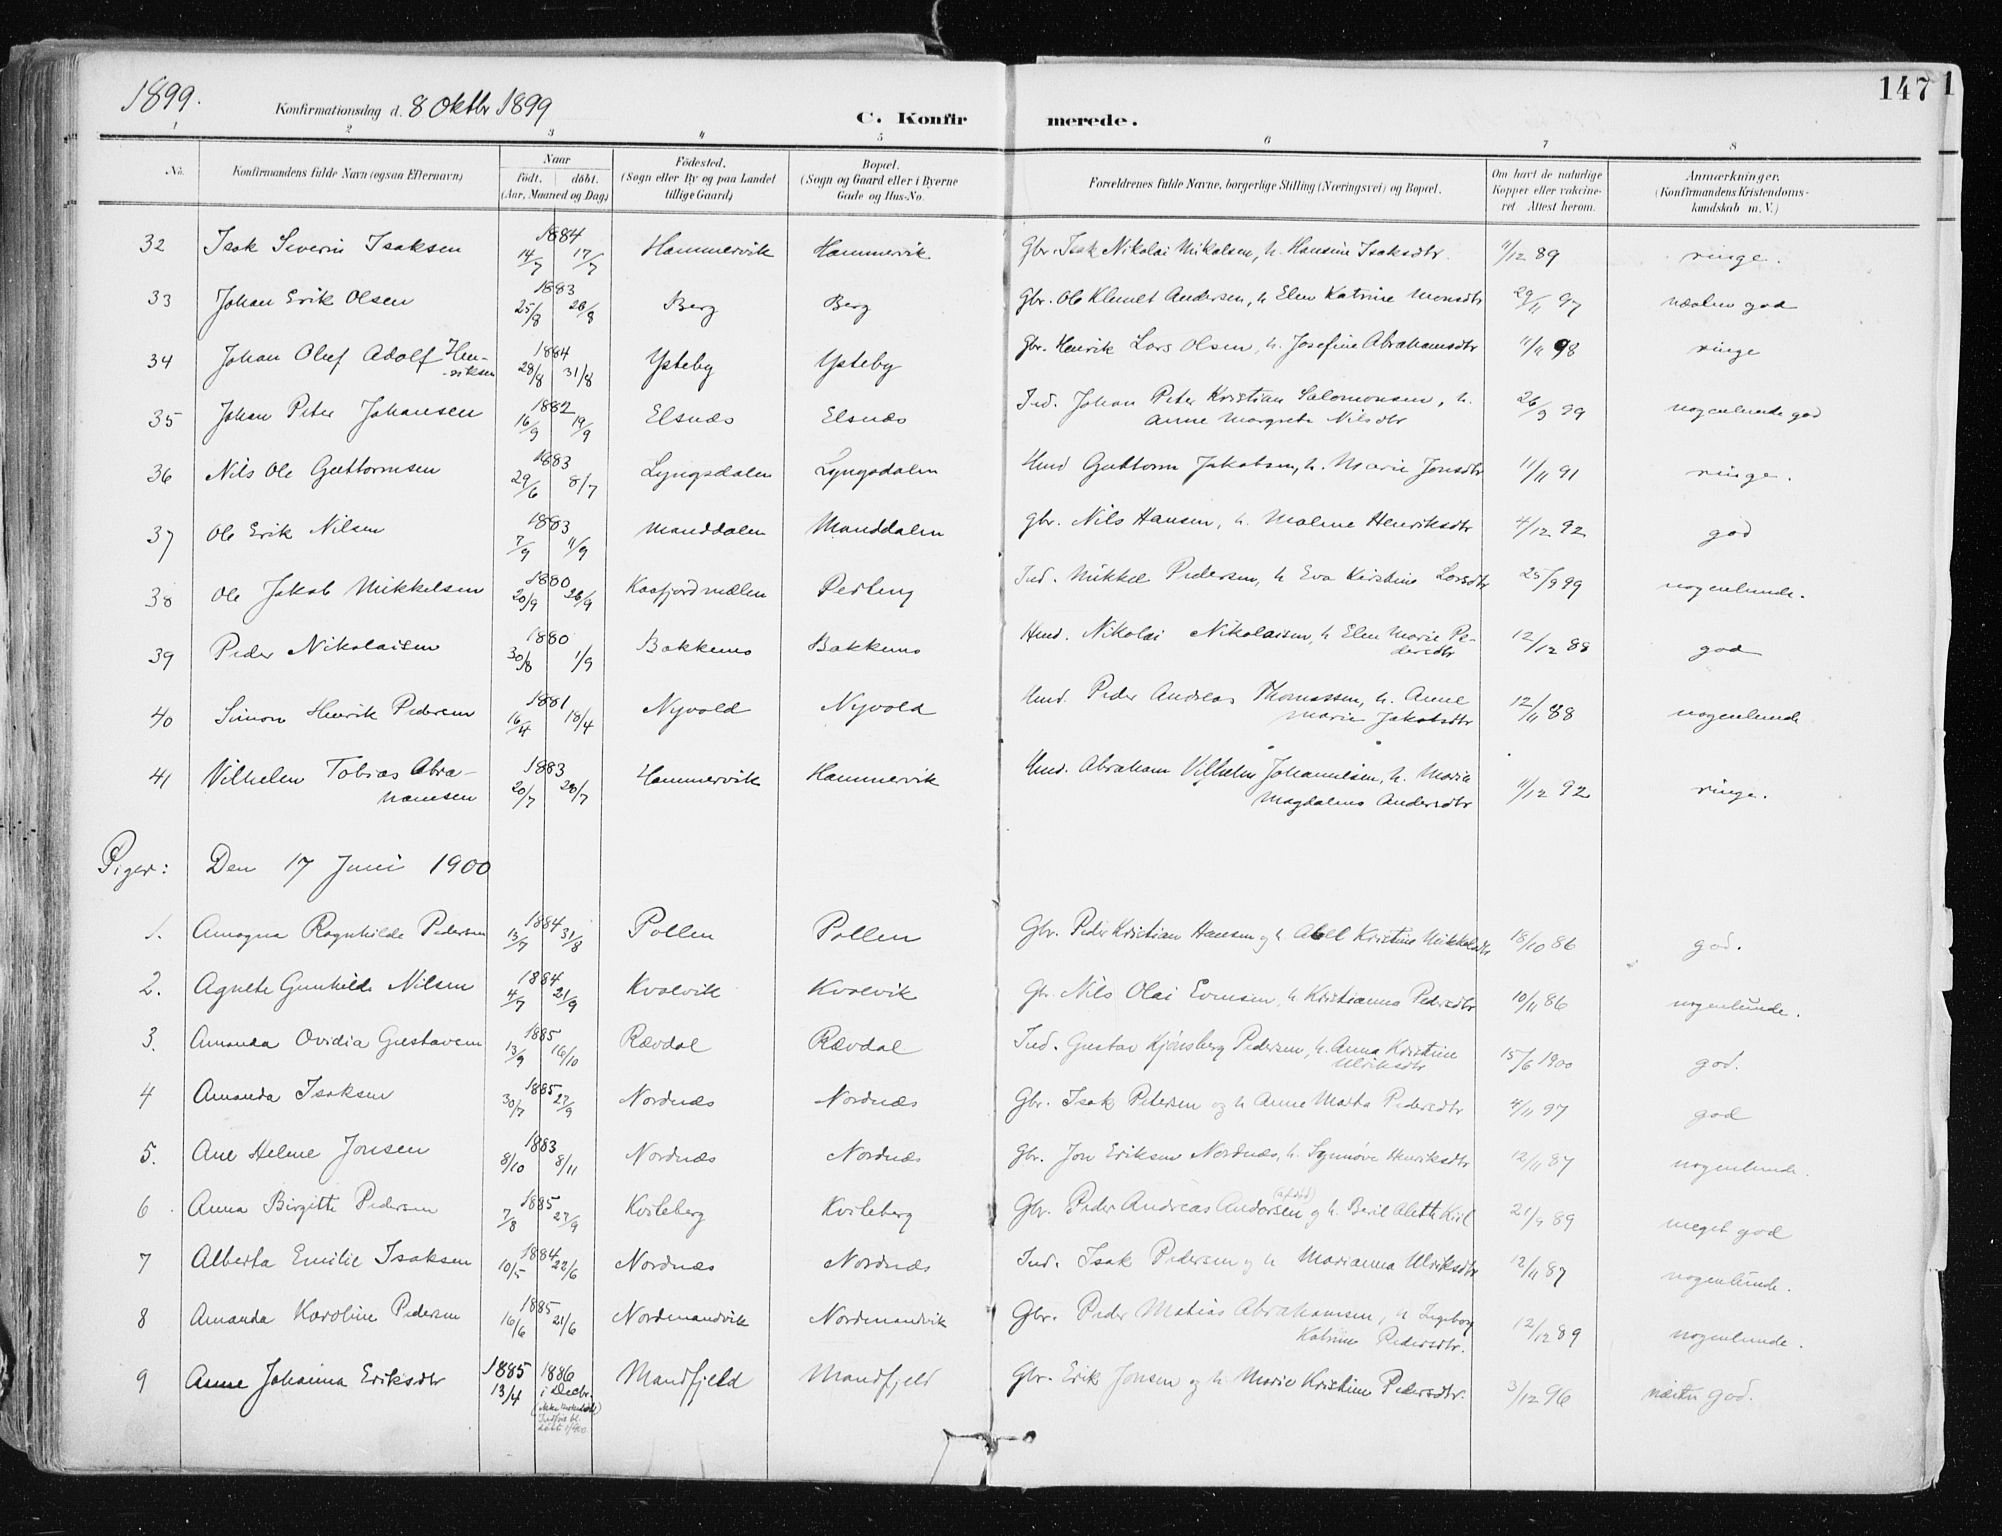 1899.
Konfirmationsdag d. 8 Oktbr 1899
C. Konfirmerede.
147
1 2 3 4 5 6 7 8
No. | Konfirmandens fulde Navn (ogsaa Efternavn) | Naar født. døbt. (Aar, Maaned og Dag) | Fødested. (Sogn eller By og paa Landet tillige Gaard) | Bopæl. (Sogn og Gaard eller i Byerne Gade og Hus-No. | Forældrenes fulde Navne, borgerlige Stilling (Næringsvei) og Bopæl. | Om havt de naturlige Kopper eller vakcineret Attest herom. | Anmærkninger. (Konfirmandens Kristendomskundskab m. V.)
32 Isak Severin Isaksen 1884 14/7 17/7 Hammervik Hammervik Gbr. Isak Nikolai Mikalsen, h. Hansine Isaksdtr. 11/12 89 ringe.
33 Johan Erik Olsen 1883 25/8 26/8 Berg Berg Gbr. Ole Klemet Andersen, h Elen Katrine Monsdtr 29/11 97 næsten god
34 Johan Oluf Adolf Hen-
riksen 1884 28/8 31/8 Ysteby Ysteby Gbr. Henrik Lars Olsen, h. Josefine Abrahamsdtr 11/11 98 ringe
35 Johan Peter Johansen 1882 16/9 19/9 Elsnæs Elsnæs Ind. Johan Peter Kristian Salomonsen, h.
Anne Margrete Nilsdtr 26/9 99 nogenlunde god
36 Nils Ole Guttormsen 1883 29/6 8/7 Lyngsdalen Lyngsdalen Hmd Guttorm Jakobsen, h. Marie Jonsdtr 11/11 91 ringe.
37 Ole Erik Nilsen 1883 7/9 11/9 Manddalen Manddalen Gbr. Nils Hansen, h. Malene Henriksdtr 4/12 92 god
38 Ole Jakob Mikkelsen 1880 20/9 26/9 Kaafjordmælen Ind. Mikkel Pedersen, h Eva Kirstine Larsdtr 25/9 99 nogenlunde.
39 Peder Nikolaisen 1880 30/8 1/9 Bakkemo Bakkemo Hmd. Nikolai Nikolaisen, h Elen Marie Pe-
dersdtr 12/12 88 god
40 Simon Henrik Pedersen 1881 16/4 18/4 Nyvold Nyvold Hmd. Peder Andreas Thomassen, h. Anne
Marie Jakobsdtr 12/11 88 nogenlunde
41 Vilhelm Tobias Abra-
hamsen 1883 20/7 20/7 Hammervik Hammervik Hmd. Abraham Vilhelm Johannesen, h. Maria
Magdalena Andersdtr 11/12 92 ringe.
Piger: Den 17 Juni 1900
1. Amagna Ragnhilde Pedersen 1884 13/7 31/8 Pollen Pollen Gbr. Peder Kristian Hansen og h. Abell Kristine Mikkelsdtr 18/10 86 god.
2. Agnete Gunhilde Nilsen 1884 4/7 21/9 Kvalvik Kvalvik Gbr. Nils Olai Evensen, h Kristianna Pedersdtr 10/11 86 nogenlunde.
3. Amanda Ovidia Gustavsen 1885 13/9 16/10 Rævdal Rævdal Ind. Gustav Kjønsberg Pedersen, h. Anna Kristine
Ulriksdtr 15/6 1900 god.
4 Amanda Isaksen 1885 30/7 27/9 Nordnæs Nordnæs Gbr. Isak Petersen og h Anne Marta Pedersdtr 4/11 97 god
5. Ane Helene Jonsen 1883 8/10 8/11 Nordnæs Nordnæs Gbr. Jon Eriksen Nordnæs, h. Synnøve Henriksdtr 12/11 87 nogenlunde.
6 Anna Birgitte Pedersen 1885 7/8 27/9 Kvileberg Kvileberg Gbr. Peder Andreas Andersen (afdød) og h. Beril Aleth Kiil 21/9 89 meget god
7 Alberta Emilie Isaksen 1884 10/5 22/6 Nordnæs Nordnæs Ind. Isak Pedersen og h Marianna Ulriksdtr 12/11 87 nogenlunde.
8 Amanda Karoline Pedersen 1885 16/6 21/6 Nordmandvik Nordmandvik Gbr. Peder Matias Abrahamsen, h Ingeborg
Katrine Pedersdtr. 12/12 89 nogenlunde.
9 Anne Johanna Eriksdtr 1885 13/4 1886 i Decbr. Mandfjeld Mandfjeld Gbr. Erik Jonsen og h. Marie Kristine Pedersdtr. 3/12 96 næsten god.